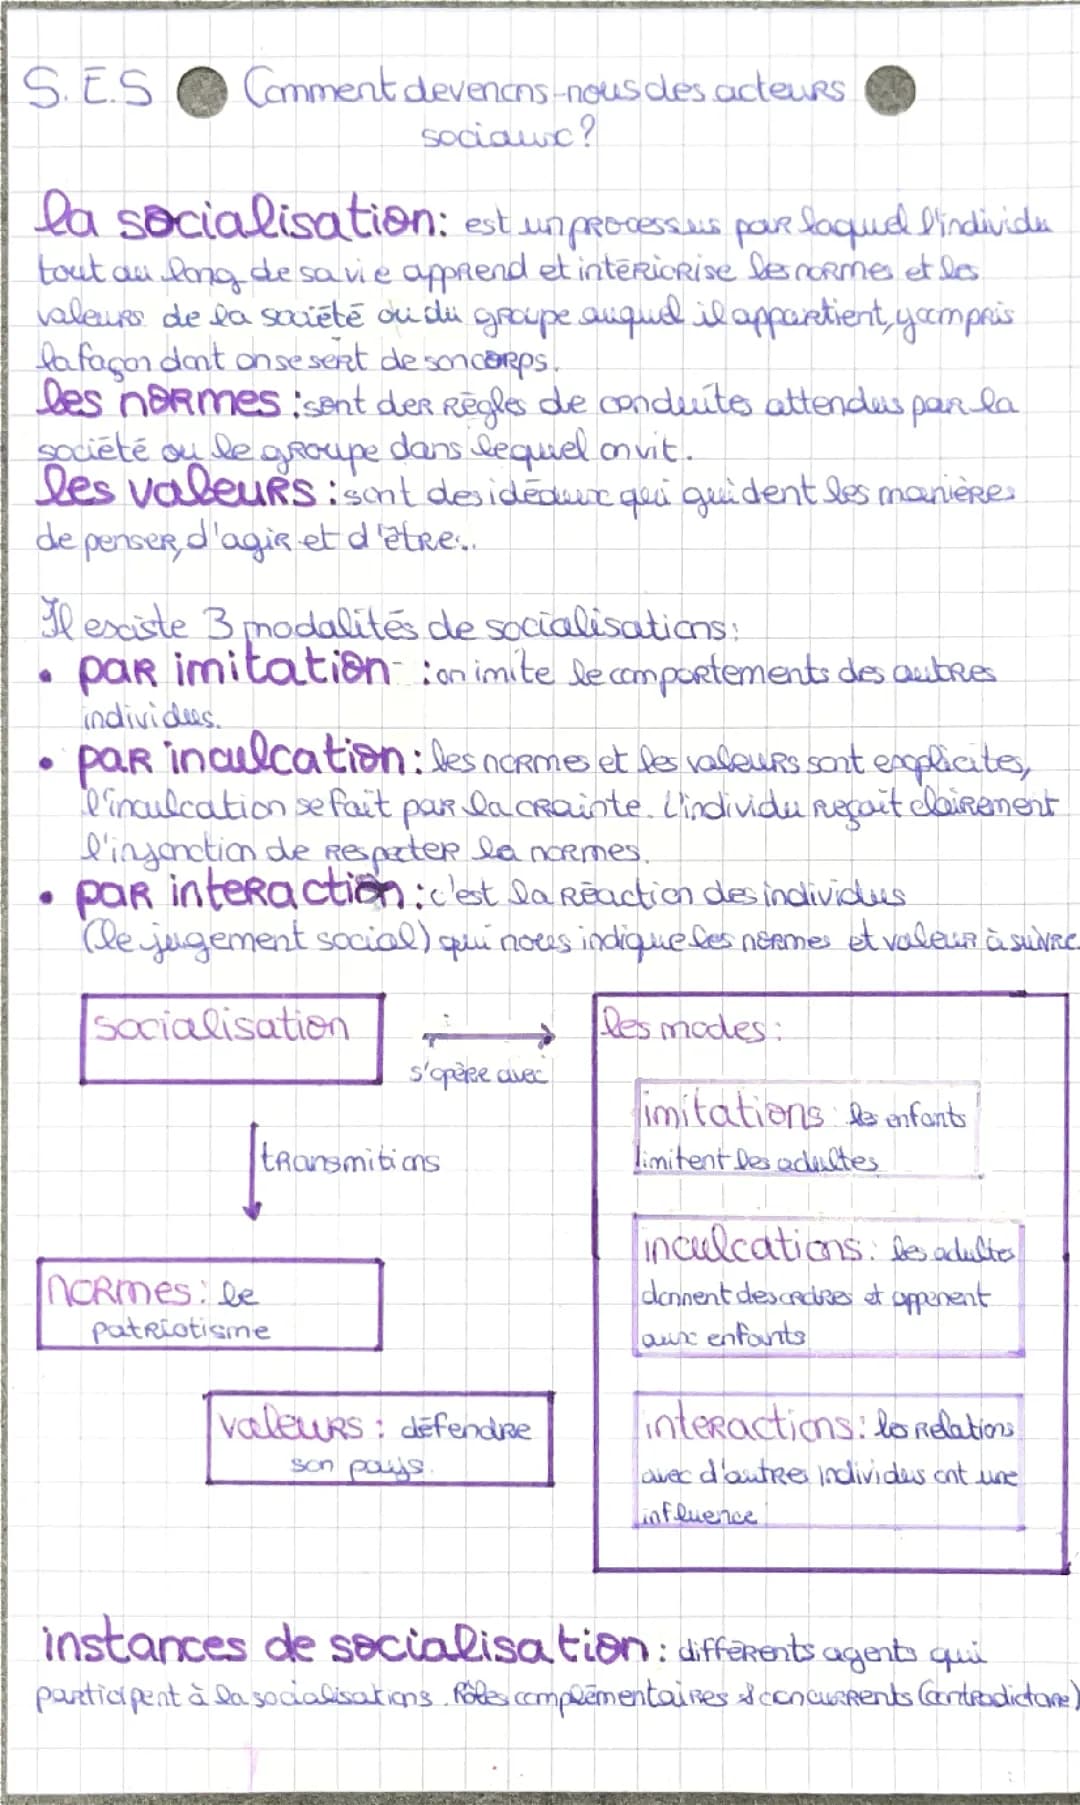 S.E.S Comment devenons-nous des acteurs
sociaux?
la socialisation: est un processus par laquel l'individu
tout au long de sa vie apprend et intériorise les normes et les
valeurs de la société ou du groupe auquel il appartient, y compris
la façon dont on se sert de son corps.
les normes : sont der règles de conduites attendus par la
société ou le groupe dans lequel on vit.
les valeurs : sont des idéaux qui guident les manières
de penser, d'agir et d'être..
Il existe 3 modalités de socialisations:
• par imitation : on imite le comportements des autres
individus.
• par inculcation : les normes et les valeurs sont explicites,
l'inculcation se fait par la crainte. L'individu reçoit clairement
l'injonction de respecter la normes.
• par interaction : c'est la réaction des individus
(le jugement social) qui nous indique les normes et valeur à suivre
socialisation
s'opère avec
les modes :
imitations : les enfants
imitent les adultes
transmitions
inculcations : les adultes
donnent des ordres et apprenent
aux enfants
normes : le
patriotisme
valeurs : défendre
son pays.
interactions : les relations
avec d'autres individus ont une
influence
instances de socialisation : différents agents qui
participent à la socialisations. Rôles complémentaires & concurrents (contradictoire)